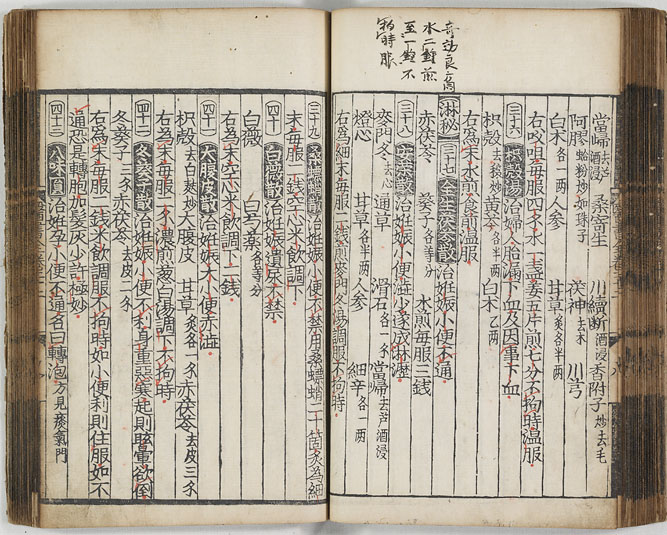 奇効良方
水二鐘煎
至一鐘不
拘時服
當歸去芦酒浸 桑寄生 川續断酒浸 香附子炒去毛
阿膠蛤粉炒如珠子 茯神去木 川芎
白朮各一両 人参 甘草炙各半両
右㕮咀毎服四分水一盞姜五片煎七分不拘時温服
三十六 枳殻湯 治婦人胎漏下血及因事下血
枳殻去穣炒 黄芩各半両 白朮乙両
右為末水煎食前温服
淋秘 三十七 全生茯苓散 治姙娠小便不通
赤茯苓 葵子各等分 水煎毎服三銭
三十八 安栄散 治姙娠小便渋少遂成淋瀝
麦門冬去心 通草 滑石各一分 當歸去芦酒浸
燈心 甘草各半両 人参 細辛各一両
右為細末毎服二銭煎麦門冬湯調服不拘時
三十九 桑螵蛸散 治姙娠小便不禁用桑螵蛸二十箇炙為細
末毎服二銭空心米飲調下
四十 白薇散 治姙娠遺尿不禁
白薇 白芍薬各等分
右為末空心米飲調下二銭
四十一 大腹皮散 治姙娠大小便赤澁
枳殻去白麩炒 大腹皮 甘草炙各一分 赤茯苓去皮三分
右為末毎服一分濃煎葱白湯調下不拘時
四十二 冬葵子散 治姙娠小便不利身重悪寒起則眩暈欲倒
冬葵子三分 赤茯苓去皮二分
右為末毎服二銭米飲調服不拘時如小便利則住服如不
通恐是轉胞加髪灰少許極妙
四十三 八味圓 治姙孕小便不通名曰轉泡方見痰氣門